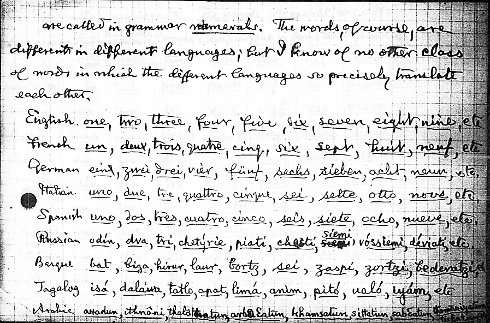 are called in grammar numerals. The words, of course, are
different in different languages; but I know of no other class
of words in which the different languages so precisely translate
each other.
English one, two, three, four, five, six, seven, eight, nine, etc
French un, deux, trois, quatre, cinq, six, sept, huit, neuf, etc
German eins, zwei, drei, vier, fünf, sechs, sieben, acht, neun, etc.
Italian uno, due, tre, quattro, cinque, sei, sette, otto, nove, etc.
Spanish uno, dos, tres, cuatro, cinco, seis, siete, ocho, nueve, etc.
Russian odin, dva, tri, chetyrie, piati, chesti, siemi, vossiemi, deviati, etc.
Basque bat, biga, hirur, laur, bortz, sei, zazpi, zortzi, bederatzi,
Tagalog isá, dalawa, tatlo, apat, limá, anim, pitó, ualó, iyám, etc
Arabic